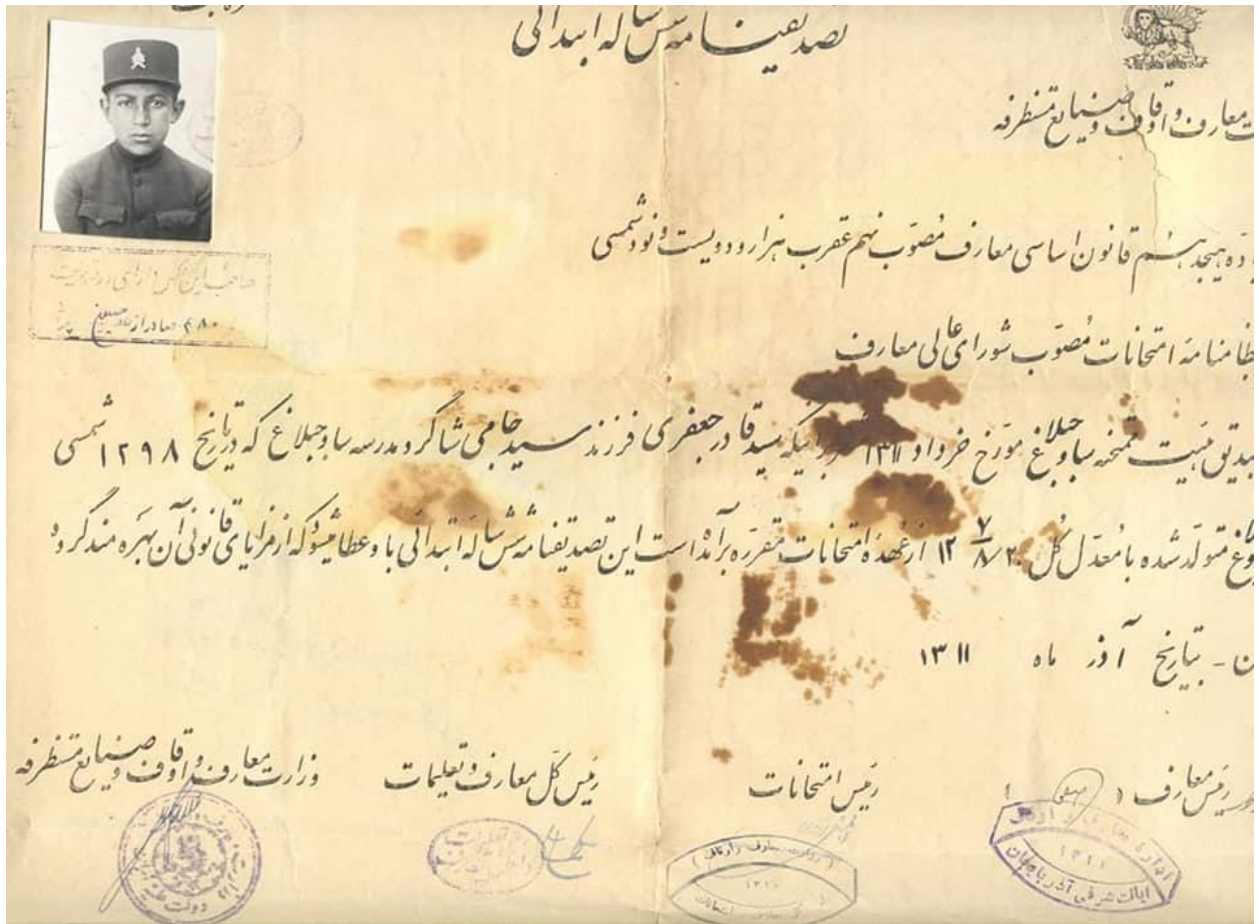 تصدیقنامه شش ساله ابتدائی
معارف و اوقاف و صنایع مستظرفه
صاحب این عکس دارای
صادر از
ده هیجدهم قانون اساسی معارف مصوب نهم عقرب هزار و دویست و نود شمسی
امتحانات مصوب شورای عالی معارف
هیئت ممتحنه ساوجبلاغ مورخ خرداد ۱۳۱۱ سید قادر جعفری فرزند سید حامی شاگرد مدرسه ساوجبلاغ که در تاریخ ۱۲۹۸ شمسی
متولد شده با معدل کل ۱۲ ۷/۸ از عهده امتحانات مقرره برآمده است این تصدیقنامه شش ساله ابتدائی باو عطا میشود که از مزایای قانونی آن بهره مند گردد
بتاریخ آذر ماه ۱۳۱۱
رئیس معارف ( )
رئیس امتحانات
رئیس کل معارف و تعلیمات
وزارت معارف و اوقاف و صنایع مستظرفه
اداره معارف و اوقاف
۱۳۱۱
ایالت شرقی آذربایجان
( وزارت معارف و اوقاف )